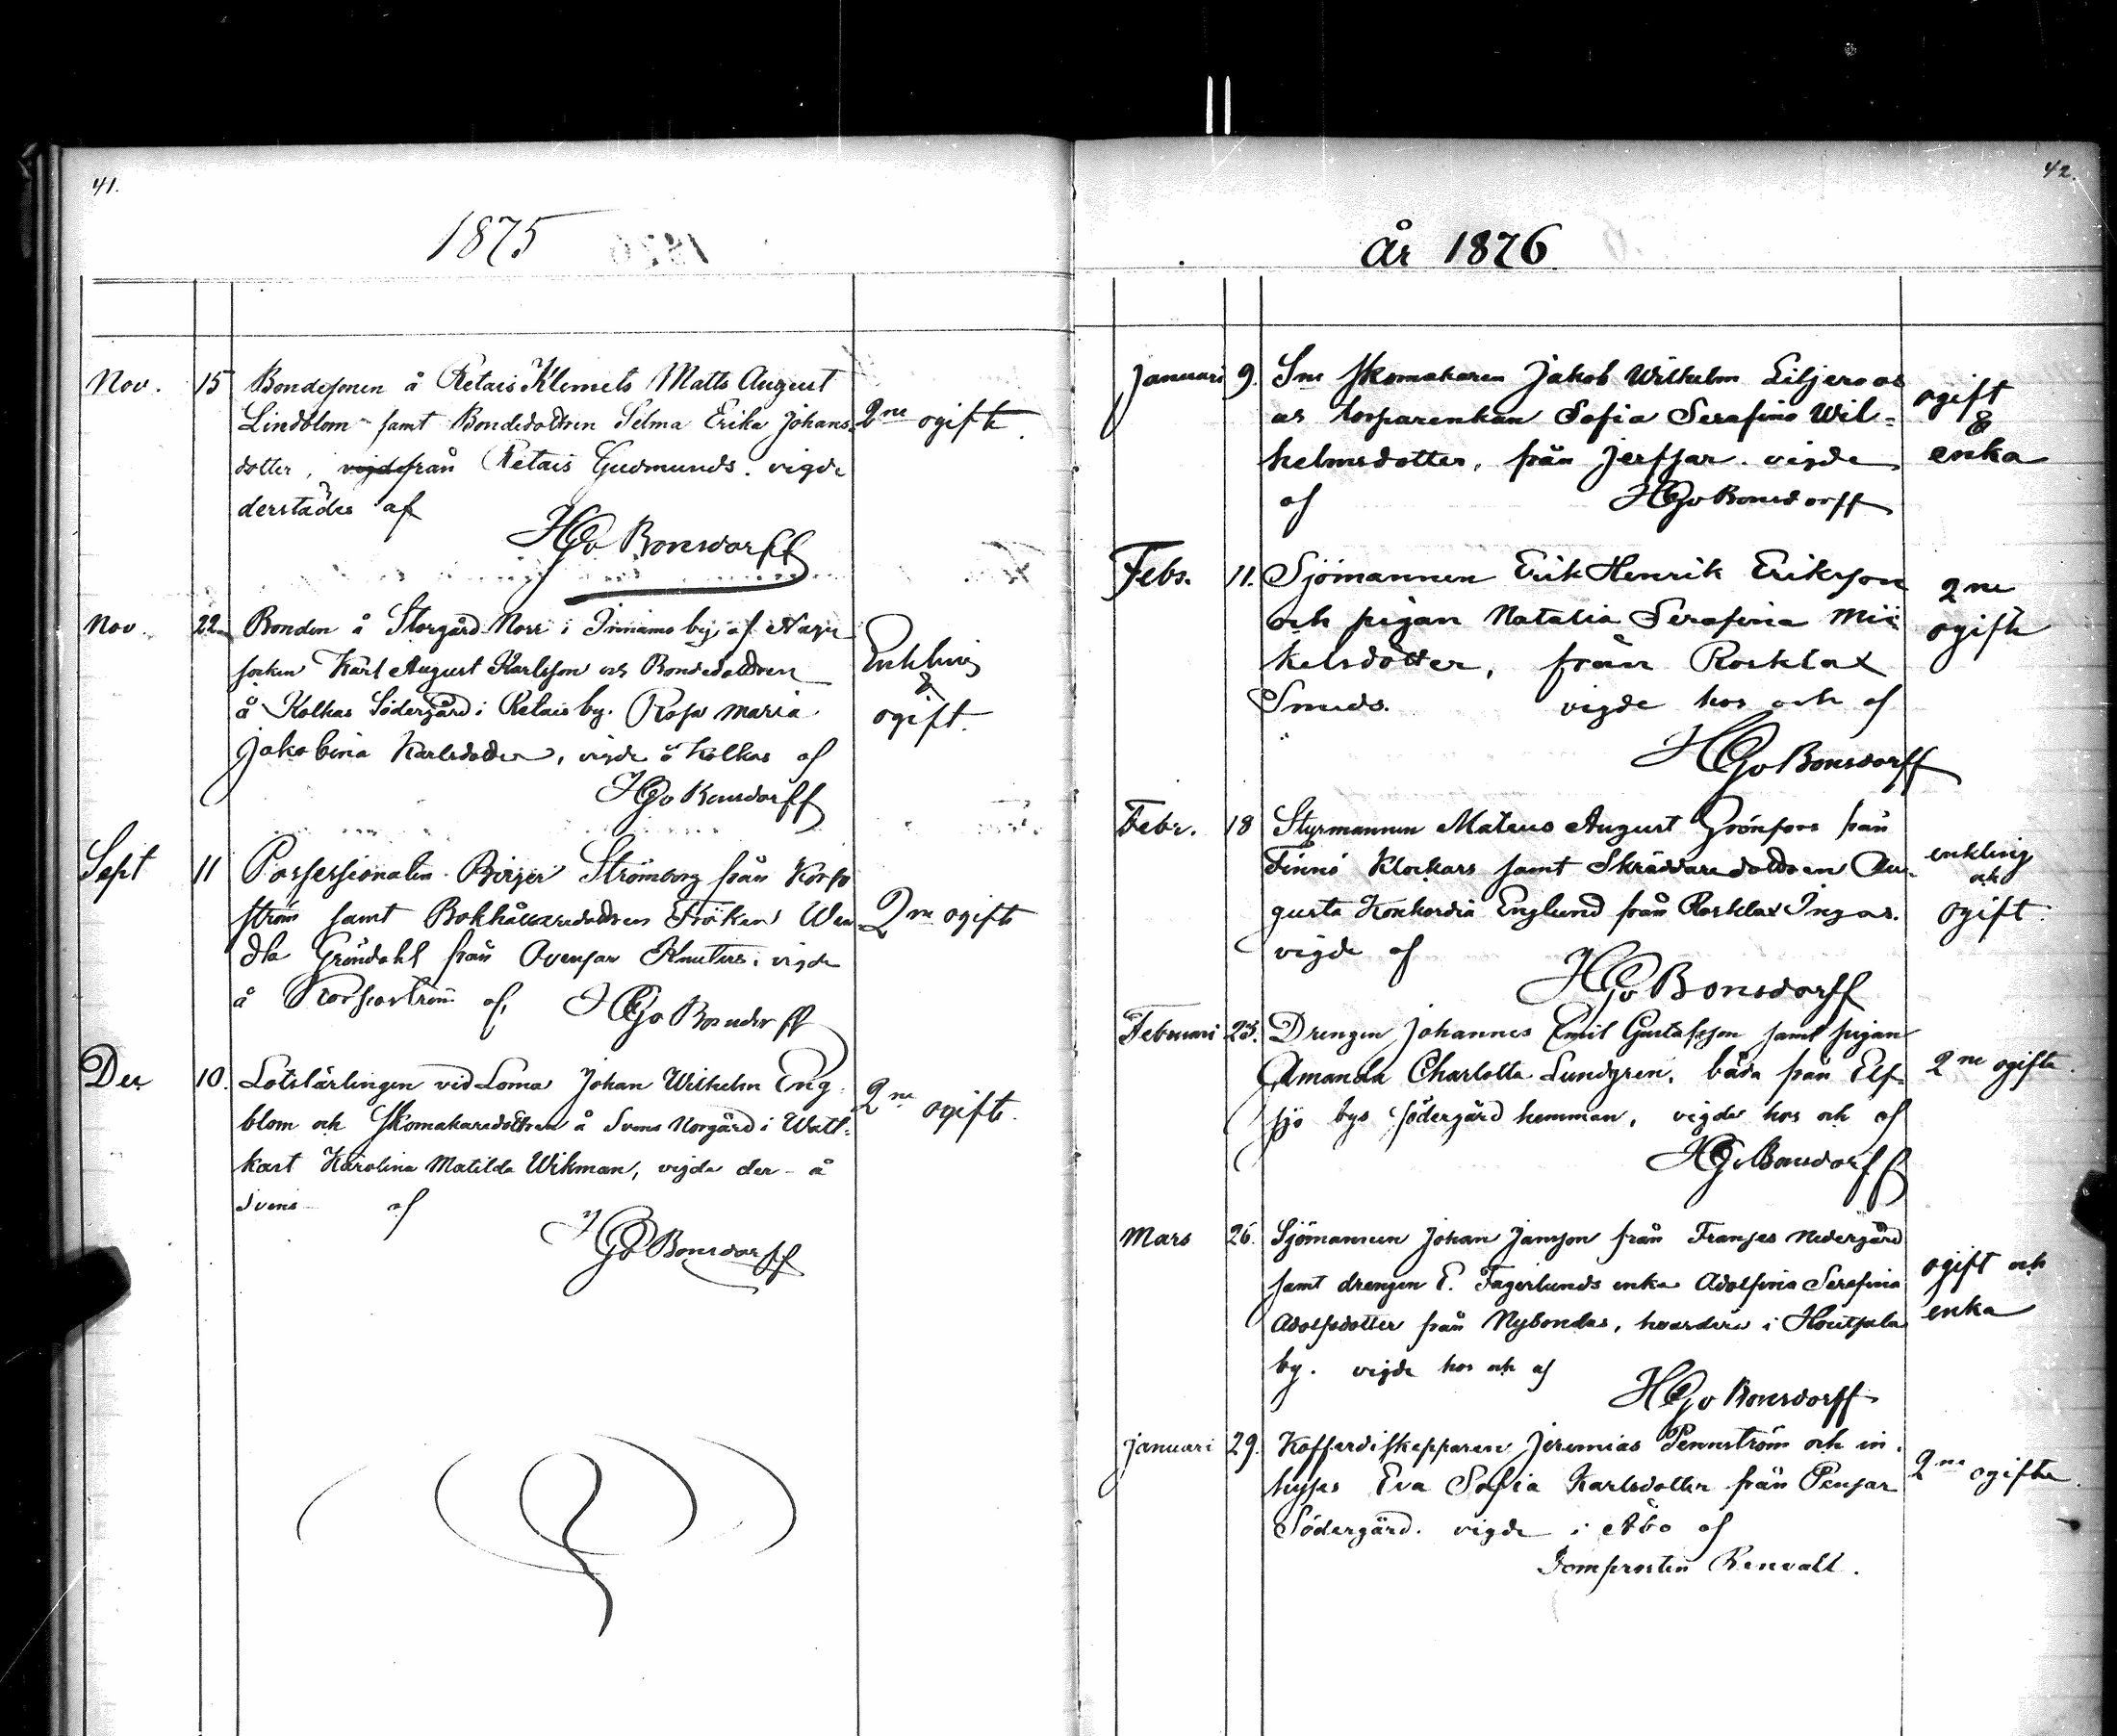 41.
1875
Nov. 15 Bondesonen å Retais Klemets Matts August
Lindblom samt Bondedottren Selma Erika Johans- 2ne ogifte.
dotter, vigde från Retais Gudmunds. vigde
derstädes af
HGv Bonsdorff
Nov. 22. Bonden å Storgård Norr i Innamo by af Nagu
socken Karl August Karlsson och Bondedottren Enkling
å Kolkas Södergård i Retais by. Rosa Maria & ogift.
Jakobina Karlsdotter, vigde å Kolkas af
HGv Bonsdorff
Sept 11 Possessionaten Birger Strömborg från Korpo
ström samt Bokhållaredottren Fröken Wen- 2ne ogifte
dla Gröndahl från Avensar Knuters. vigde
å Korpoström af HGv Bonsdorff
Dec 10. Lotslärlingen vid Loma Johan Wilhelm Eng- 2ne ogifte.
blom och Skomakaredottren å Svens Norgård i Watt-
kast Karolina Matilda Wikman, vigde der å
Svens af
HGv Bonsdorff
42.
År 1876
Januari 9. Sne skomakaren Jakob Wilhelm Liljeroos ogift
os torparenkan Sofia Serafina Wil- &
helmsdotter, från Jerfsar. vigde enka
af HGv Bonsdorff
Febr. 11. Sjömannen Erik Henrik Eriksson 2ne
och pigan Natalia Serafina Mic- ogifte
kelsdotter, från Rosklax
Smeds. vigde hos och af
HGv Bonsdorff
Febr. 18 Styrmannen Mateus August Grönfors från
Finnö Klockars samt Skräddaredottren Au- enkling och
gusta Konkordia Englund från Rosklax Ingas. ogift.
vigde af
HGv Bonsdorff
Februari 25. Drengen Johannes Emil Gustafsson samt pigan
Amanda Charlotta Lundgren, båda från Elf- 2ne ogifte.
sjö bys södergård hemman, vigde hos och af
HGv Bonsdorff
Mars 26. Sjömannen Johan Jansson från Fransas Nedergård
samt drengen E. Fagerlunds enka Adolfina Serafina ogift och
Adolfsdotter från Nybondas, hvardera i Houtsala enka
by. vigde hos och af
HGv Bonsdorff
Januari 29. Kofferdiskepparen Jeremias Pennström och in-
hyses Eva Sofia Karlsdotter från Pensar 2ne ogifte.
Södergård. vigde i Åbo af
Domprosten Renvall.